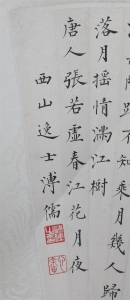 不知乘月幾人歸
落月搖情滿江樹
唐人張若虛春江花月夜
西山逸士溥儒